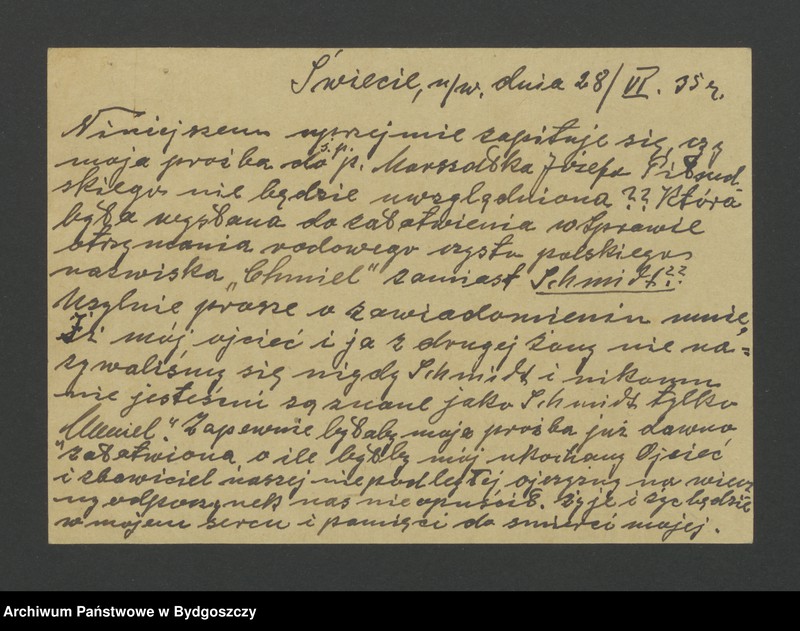 Świecie, n/w. dnia 28/VI. 35 r.
Niniejszem uprzejmie zapituje się, czy
moja prośba do ś.p. p. Marszałka Józefa Piłsud-
skiego nie będzie uwzględniona?? Która
była wysłana do załatwienia w sprawie
otrzymania rodowego czysto polskiego
nazwiska "Chmiel" zamiast Schmidt??
Usylnie prosze o zawiadomieniu mnie,
Iż mój ojcieć i ja z drugej żony nie na=
zywaliśmy się nigdy Schmidt i nikomu
nie jesteśmi są znane jako Schmidt tylko
"Chmiel". Zapewnie byłaby moja prośba już dawno
załatwiona, o ile byłby mój ukochany Ojcieć
i zbawiciel naszej niepodległej ojczyzny na wiecz
ny odpoczynek nas nie opuścił. Żyje i żyć będzie
w mojem sercu i pamięci do śmierci mojej.
Archiwum Państwowe w Bydgoszczy